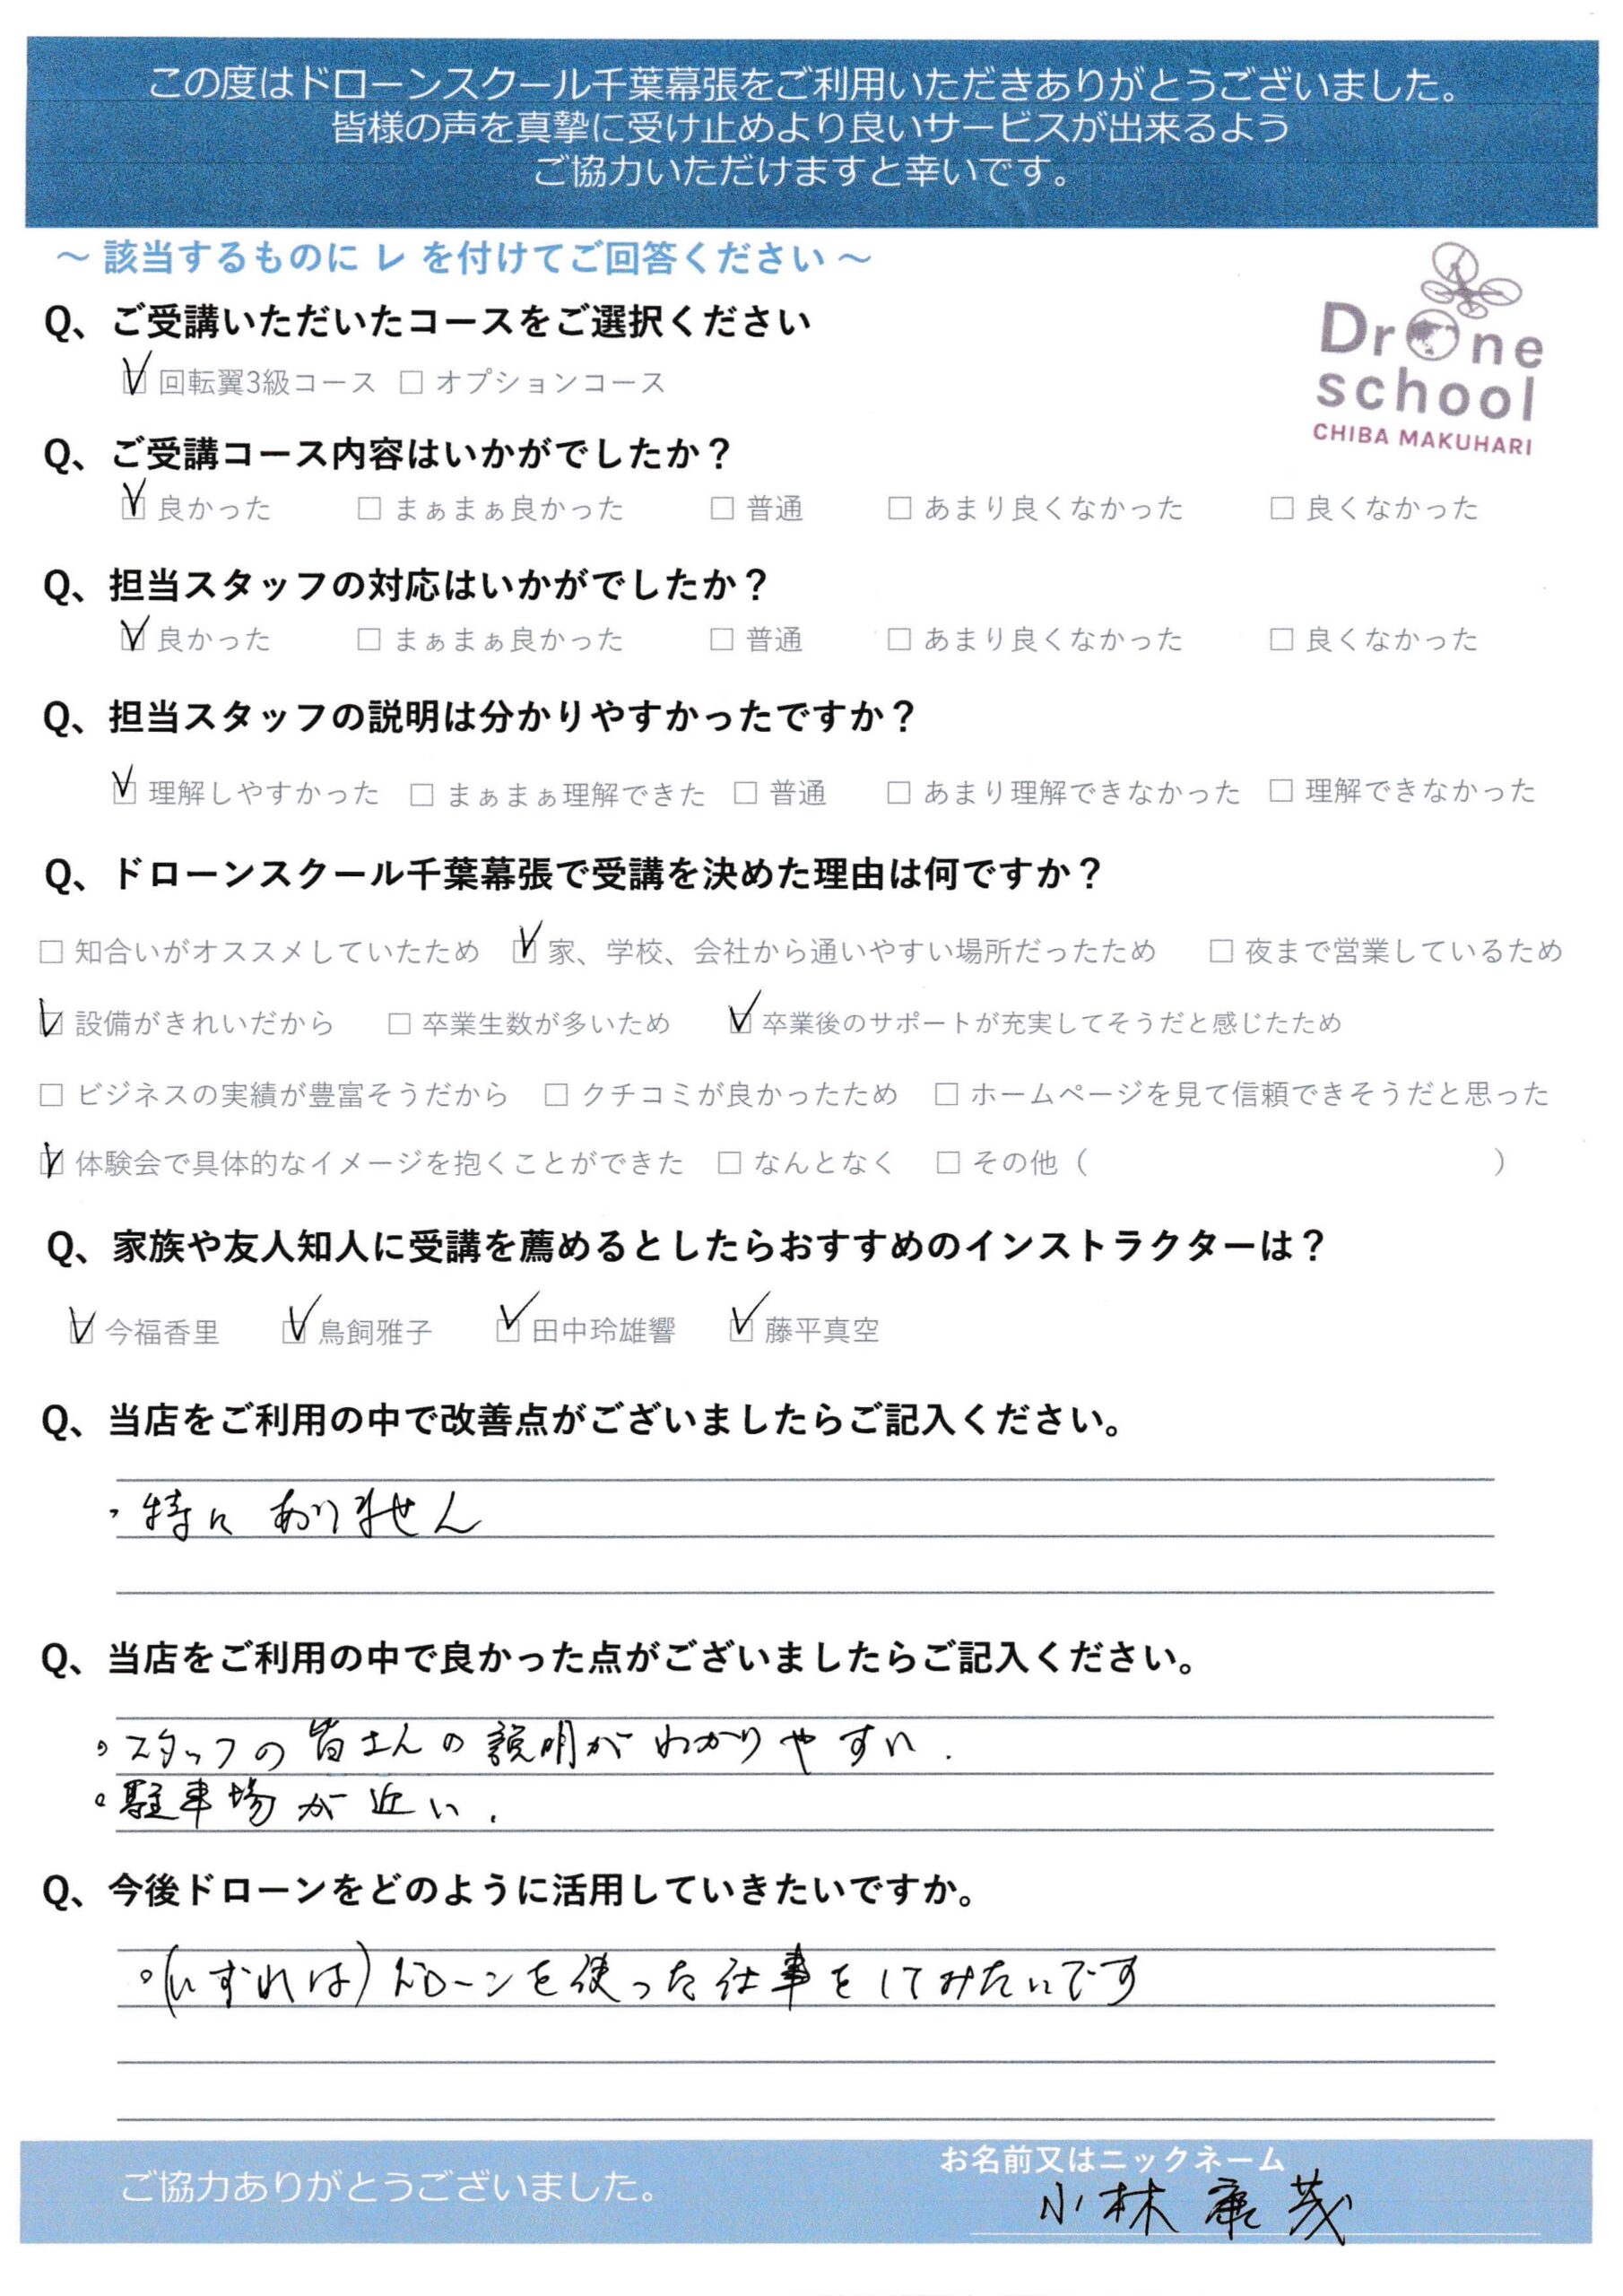 この度はドローンスクール千葉幕張をご利用いただきありがとうございました。
皆様の声を真摯に受け止めより良いサービスが出来るよう
ご協力いただけますと幸いです。
～ 該当するものに レ を付けてご回答ください ～
Drone
school
CHIBA MAKUHARI
Q、ご受講いただいたコースをご選択ください
☑ 回転翼3級コース □ オプションコース
Q、ご受講コース内容はいかがでしたか？
☑ 良かった □ まぁまぁ良かった □ 普通 □ あまり良くなかった □ 良くなかった
Q、担当スタッフの対応はいかがでしたか？
☑ 良かった □ まぁまぁ良かった □ 普通 □ あまり良くなかった □ 良くなかった
Q、担当スタッフの説明は分かりやすかったですか？
☑ 理解しやすかった □ まぁまぁ理解できた □ 普通 □ あまり理解できなかった □ 理解できなかった
Q、ドローンスクール千葉幕張で受講を決めた理由は何ですか？
□ 知合いがオススメしていたため ☑ 家、学校、会社から通いやすい場所だったため □ 夜まで営業しているため
☑ 設備がきれいだから □ 卒業生数が多いため ☑ 卒業後のサポートが充実してそうだと感じたため
□ ビジネスの実績が豊富そうだから □ クチコミが良かったため □ ホームページを見て信頼できそうだと思った
☑ 体験会で具体的なイメージを抱くことができた □ なんとなく □ その他（ ）
Q、家族や友人知人に受講を薦めるとしたらおすすめのインストラクターは？
☑ 今福香里 ☑ 鳥飼雅子 ☑ 田中玲雄響 ☑ 藤平真空
Q、当店をご利用の中で改善点がございましたらご記入ください。
・特に ありません
Q、当店をご利用の中で良かった点がございましたらご記入ください。
○スタッフの皆さんの説明がわかりやすい．
○駐車場が近い．
Q、今後ドローンをどのように活用していきたいですか。
○(いずれは)ドローンを使った仕事をしてみたいです
お名前又はニックネーム
ご協力ありがとうございました。
小林 康茂